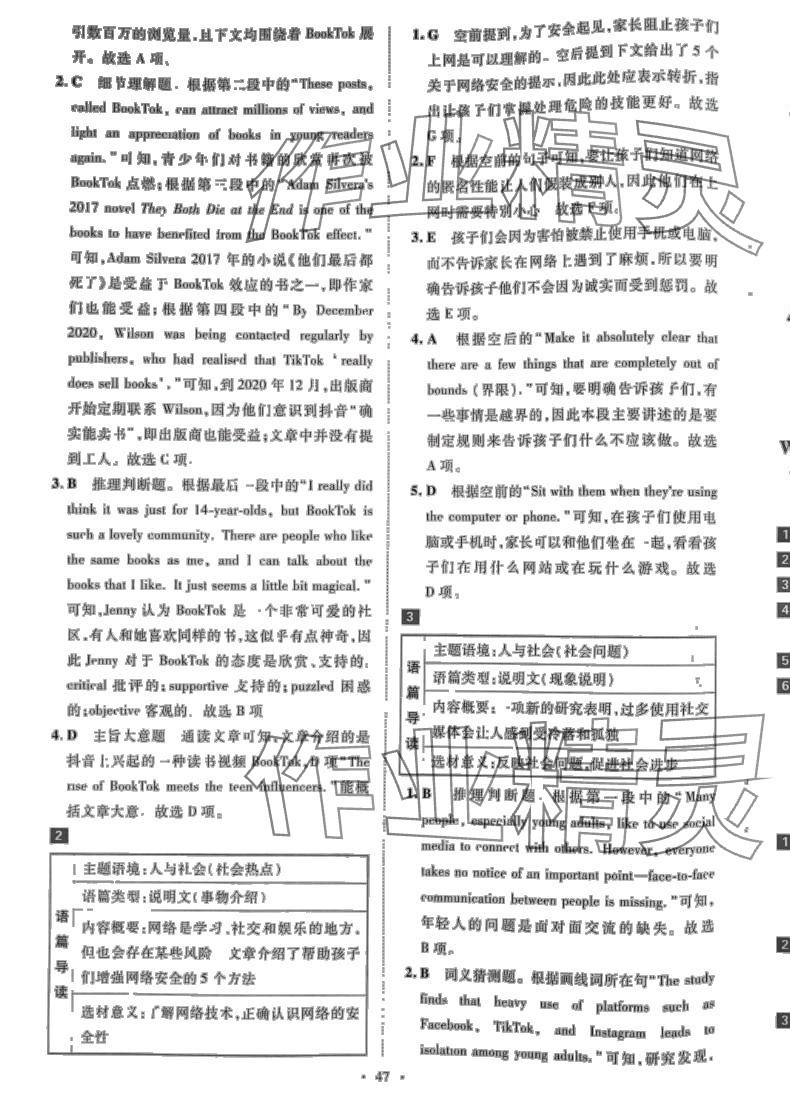 引数百万的浏览量,且下文均围绕着 BookTok 展
开。故选 A 项。
2. C 细节理解题. 根据第二段中的“These posts,
called BookTok, can attract millions of views, and
light an appreciation of books in young readers
again.”可知,青少年们对书籍的欣赏再次被
BookTok 点燃;根据第三段中的“Adam Silvera's
2017 novel They Both Die at the End is one of the
books to have benefited from the BookTok effect.”
可知,Adam Silvera 2017 年的小说《他们最后都
死了》是受益于 BookTok 效应的书之一,即作家
们也能受益;根据第四段中的“By December
2020, Wilson was being contacted regularly by
publishers, who had realised that TikTok ‘really
does sell books’.”可知,到 2020 年 12 月,出版商
开始定期联系 Wilson,因为他们意识到抖音“确
实能卖书”,即出版商也能受益;文章中并没有提
到工人。故选 C 项.
3. B 推理判断题。根据最后一段中的“I really did
think it was just for 14-year-olds, but BookTok is
such a lovely community. There are people who like
the same books as me, and I can talk about the
books that I like. It just seems a little bit magical.”
可知,Jenny 认为 BookTok 是一个非常可爱的社
区,有人和她喜欢同样的书,这似乎有点神奇,因
此 Jenny 对于 BookTok 的态度是欣赏、支持的.
critical 批评的; supportive 支持的; puzzled 困惑
的;objective 客观的. 故选 B 项
4. D 主旨大意题 通读文章可知,文章介绍的是
抖音上兴起的一种读书视频 BookTok,D 项“The
rise of BookTok meets the teen influencers.”能概
括文章大意. 故选 D 项。
2
语篇导读
主题语境:人与社会(社会热点)
语篇类型:说明文(事物介绍)
内容概要:网络是学习、社交和娱乐的地方。
但也会存在某些风险 文章介绍了帮助孩子
们增强网络安全的 5 个方法
选材意义:了解网络技术,正确认识网络的安
全性
1. G 空前提到,为了安全起见,家长阻止孩子们
上网是可以理解的. 空后提到下文给出了 5 个
关于网络安全的提示,因此此处应表示转折,指
出让孩子们掌握处理危险的技能更好。故选
G 项。
2. F 根据空前的句子可知,要让孩子们知道网络
的匿名性能让人们假装成别人,因此他们在上
网时需要特别小心 故选 F 项。
3. E 孩子们会因为害怕被禁止使用手机或电脑,
而不告诉家长在网络上遇到了麻烦,所以要明
确告诉孩子他们不会因为诚实而受到惩罚。故
选 E 项。
4. A 根据空后的“Make it absolutely clear that
there are a few things that are completely out of
bounds (界限).”可知,要明确告诉孩子们,有
一些事情是越界的,因此本段主要讲述的是要
制定规则来告诉孩子们什么不应该做。故选
A 项。
5. D 根据空前的“Sit with them when they're using
the computer or phone.”可知,在孩子们使用电
脑或手机时,家长可以和他们坐在一起,看看孩
子们在用什么网站或在玩什么游戏。故选
D 项。
3
语篇导读
主题语境:人与社会(社会问题)
语篇类型:说明文(现象说明)
内容概要:一项新的研究表明,过多使用社交
媒体会让人感到受冷落和孤独
选材意义:反映社会问题,促进社会进步
1. B 推理判断题. 根据第一段中的“Many
people, especially young adults, like to use social
media to connect with others. However, everyone
takes no notice of an important point—face-to-face
communication between people is missing.”可知,
年轻人的问题是面对面交流的缺失。故选
B 项。
2. B 词义猜测题。根据画线词所在句“The study
finds that heavy use of platforms such as
Facebook, TikTok, and Instagram leads to
isolation among young adults.”可知,研究发现,
· 47 ·
作业精灵
作业精灵
1
2
3
4
5
6
1
2
3